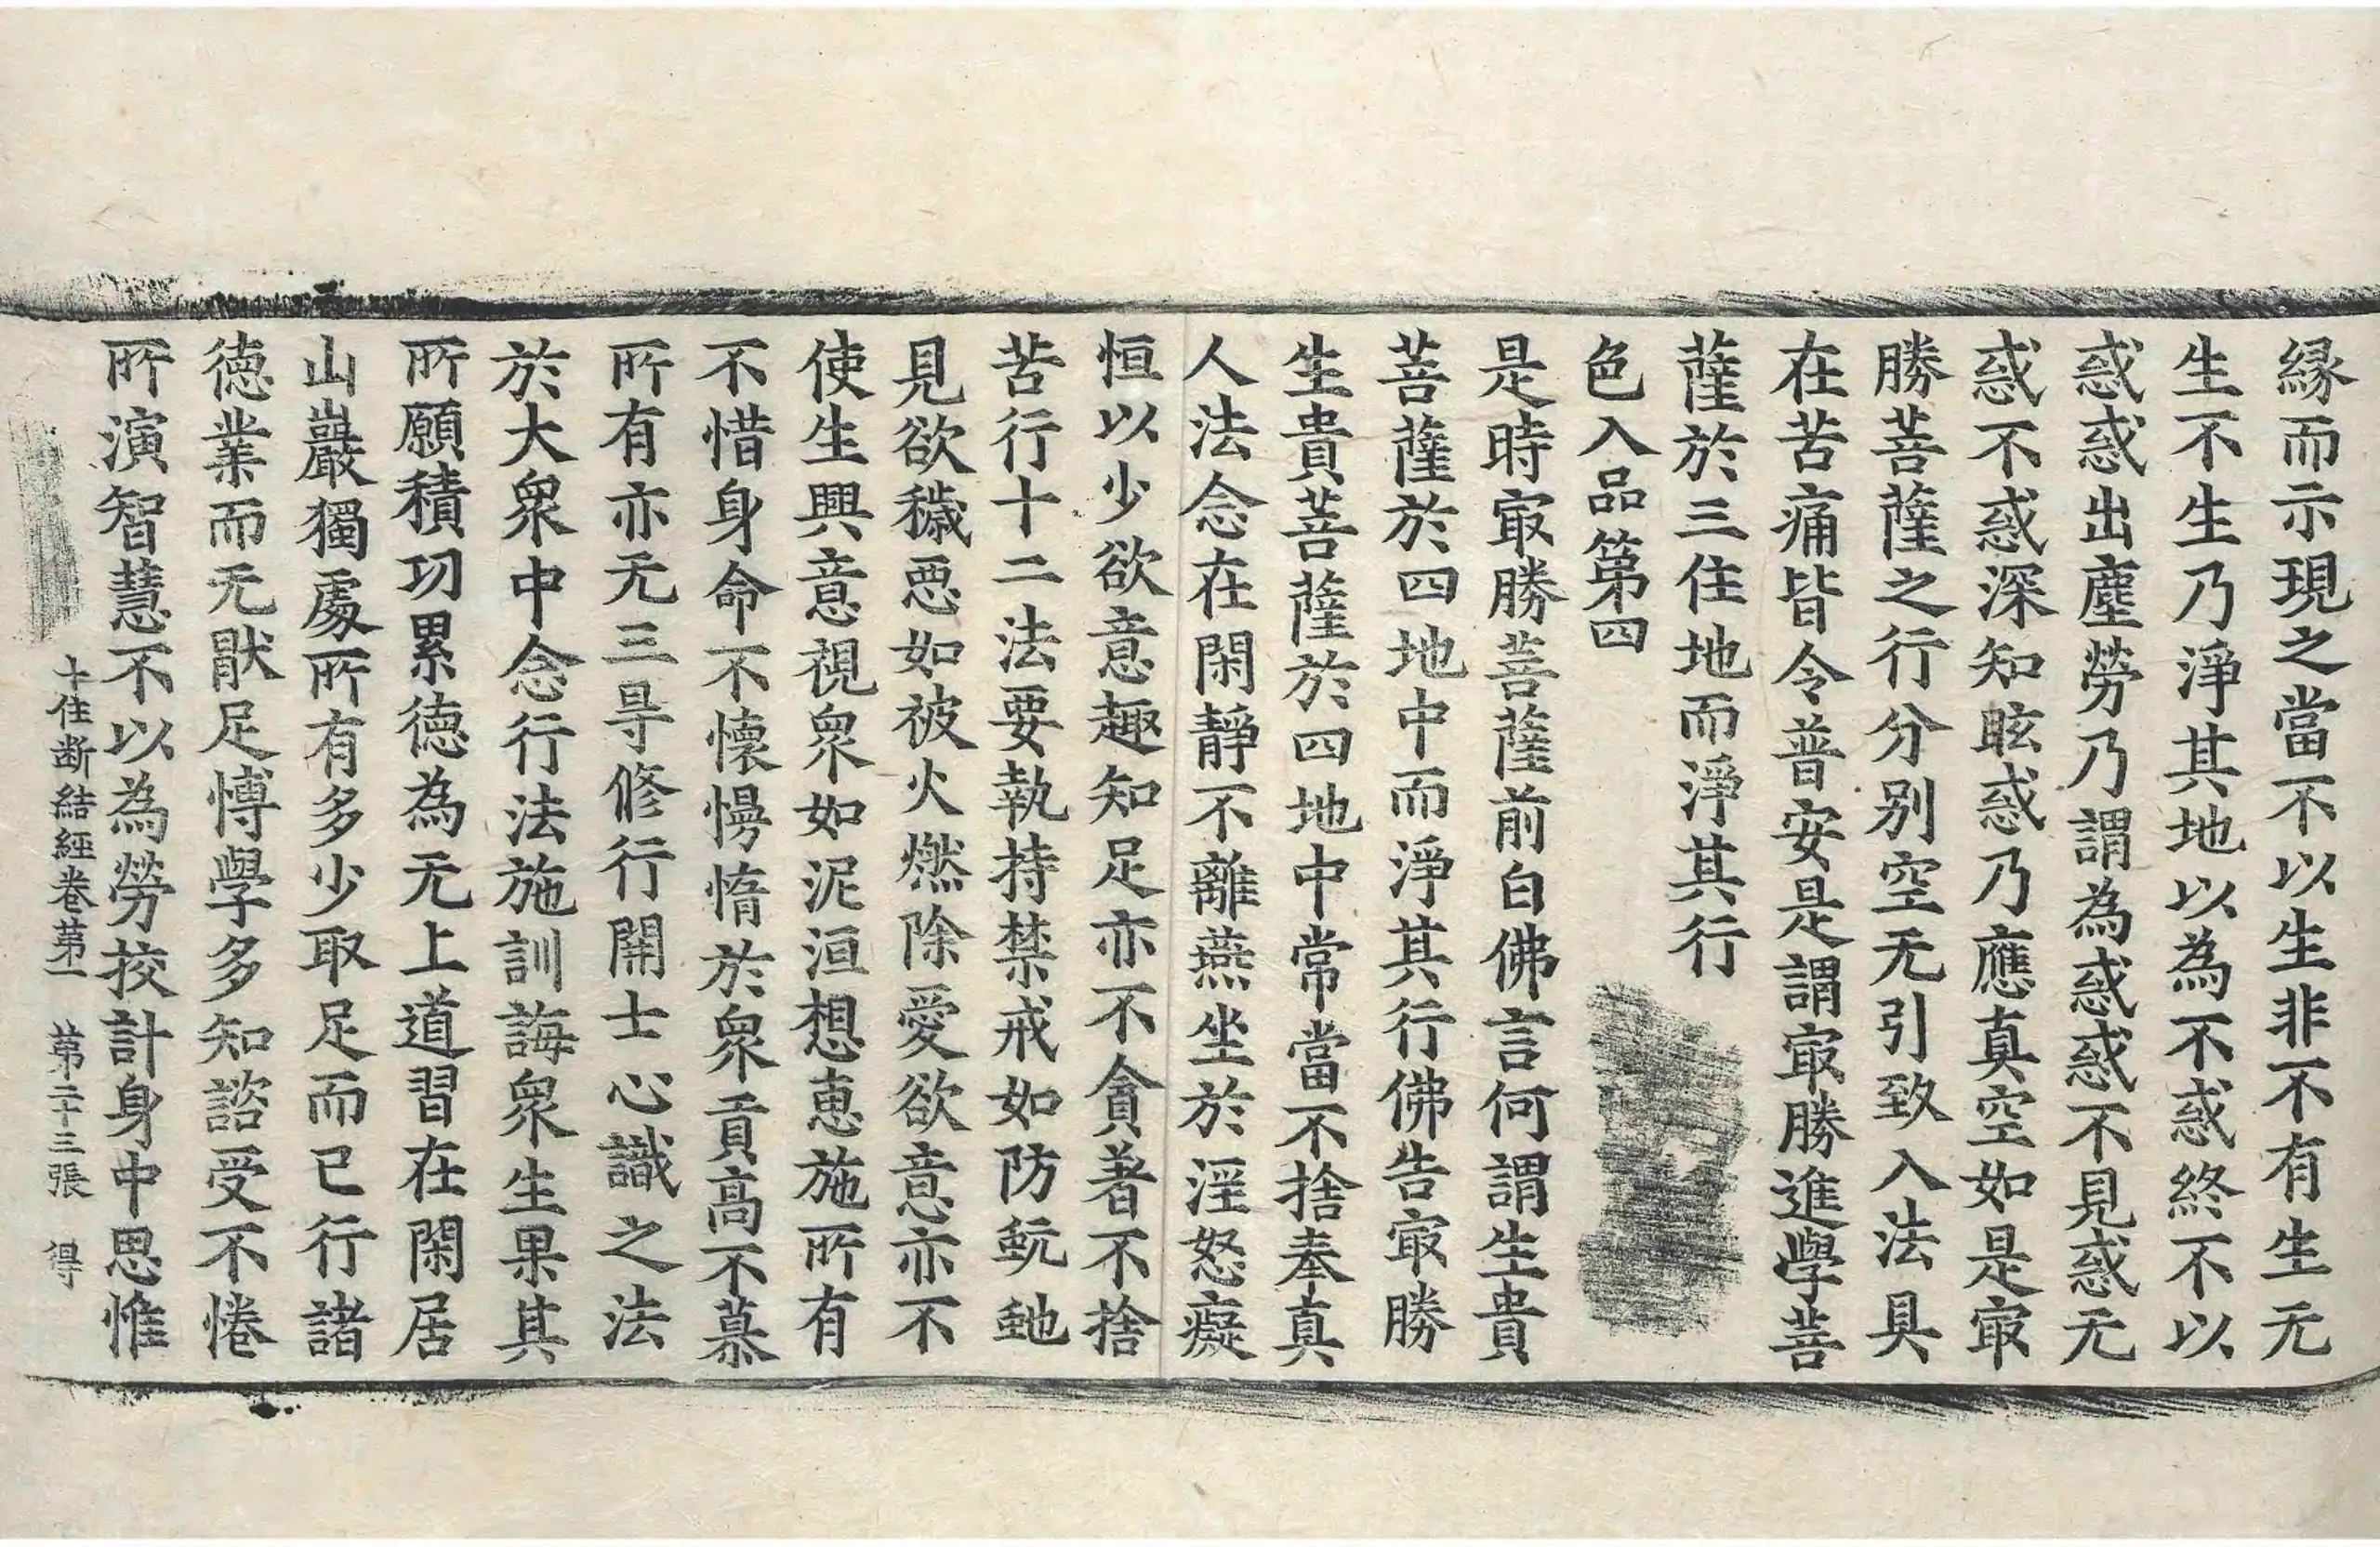 緣而示現之當不以生非不有生无
生不生乃淨其地以為不惑終不以
惑惑出塵勞乃謂為惑惑不見惑无
惑不惑深知眩惑乃應真空如是㝡
勝菩薩之行分别空无引致入法具
在苦痛皆令普安是謂㝡勝進學菩
薩於三住地而淨其行
色入品第四
是時㝡勝菩薩前白佛言何謂生貴
菩薩於四地中而淨其行佛告㝡勝
生貴菩薩於四地中常當不捨奉真
人法念在閑靜不離燕坐於淫怒癡
恒以少欲意趣知足亦不貪著不捨
苦行十二法要執持禁戒如防蚖虵
見欲穢惡如被火燃除愛欲意亦不
使生興意視衆如泥洹想恵施所有
不惜身命不懷慢惰於衆貢高不慕
所有亦无三㝵修行開士心識之法
於大衆中念行法施訓誨衆生果其
所願積功累德為无上道習在閑居
山巖獨處所有多少取足而已行諸
德業而无猒足博學多知諮受不惓
所演智慧不以為勞挍計身中思惟
十住断結經卷苐一 苐二十三張 得